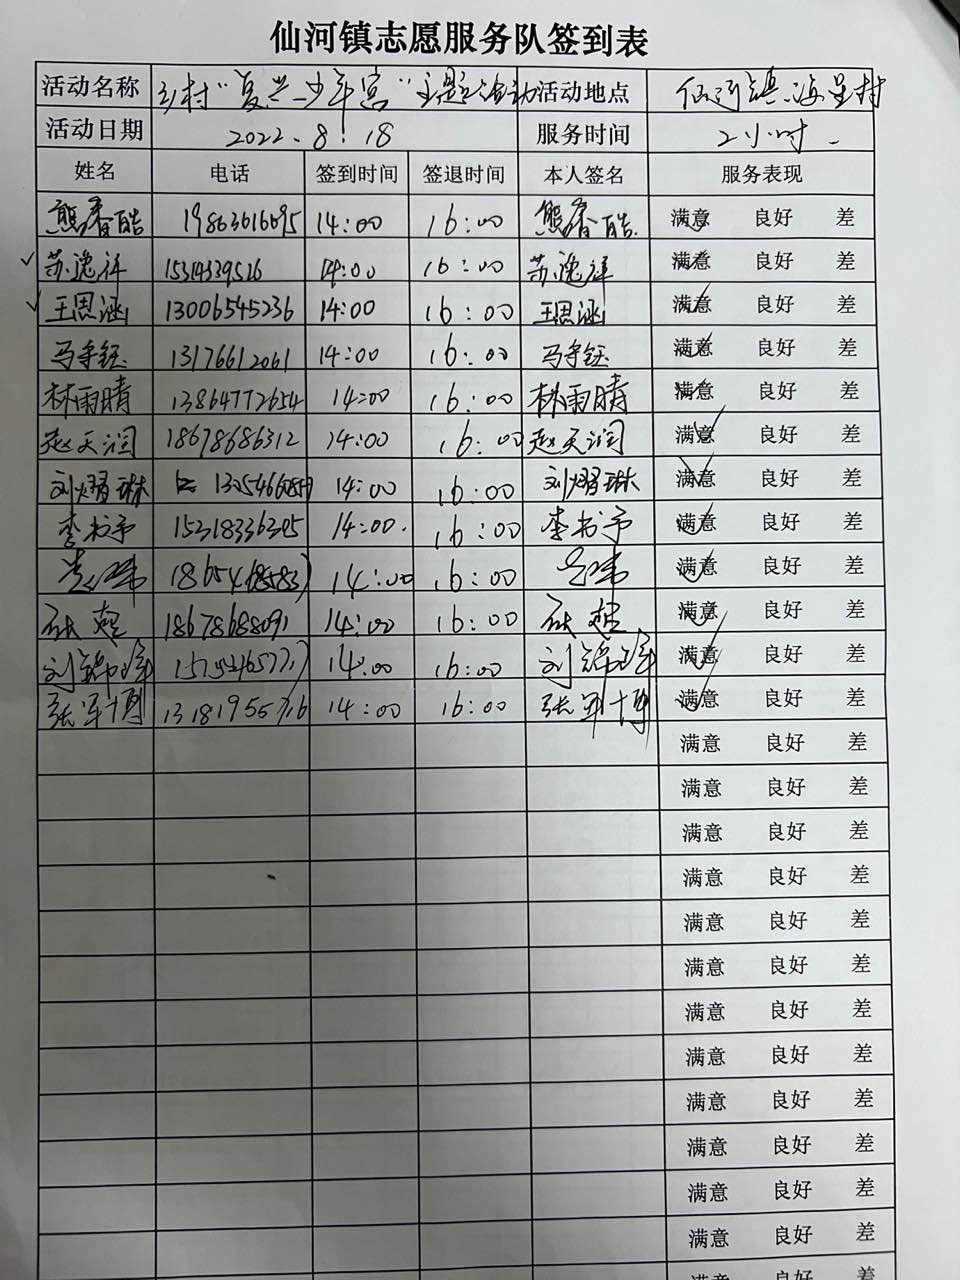 仙河镇志愿服务队签到表
活动名称 乡村“复兴少年宫”主题活动 活动地点 仙河镇海星村
活动日期 2022.8.18 服务时间 2小时.
姓名 电话 签到时间 签退时间 本人签名 服务表现
熊春皓 19863616695 14:00 16:00 熊春皓 满意 良好 差
苏逸洋 15314339526 14:00 16:00 苏逸洋 满意 良好 差
王思涵 13006545236 14:00 16:00 王思涵 满意 良好 差
马守钰 13176612061 14:00 16:00 马守钰 满意 良好 差
林雨晴 13864772654 14:00 16:00 林雨晴 满意 良好 差
赵天润 18678686312 14:00 16:00 赵天润 满意 良好 差
刘熠琳 14:00 16:00 刘熠琳 满意 良好 差
李书予 15318336305 14:00 16:00 李书予 满意 良好 差
14:00 16:00 满意 良好 差
18678688091 14:00 16:00 满意 良好 差
14:00 16:00 满意 良好 差
张军博 14:00 16:00 张军博 满意 良好 差
满意 良好 差
满意 良好 差
满意 良好 差
满意 良好 差
满意 良好 差
满意 良好 差
满意 良好 差
满意 良好 差
满意 良好 差
满意 良好 差
满意 良好 差
满意 良好 差
满意 良好 差